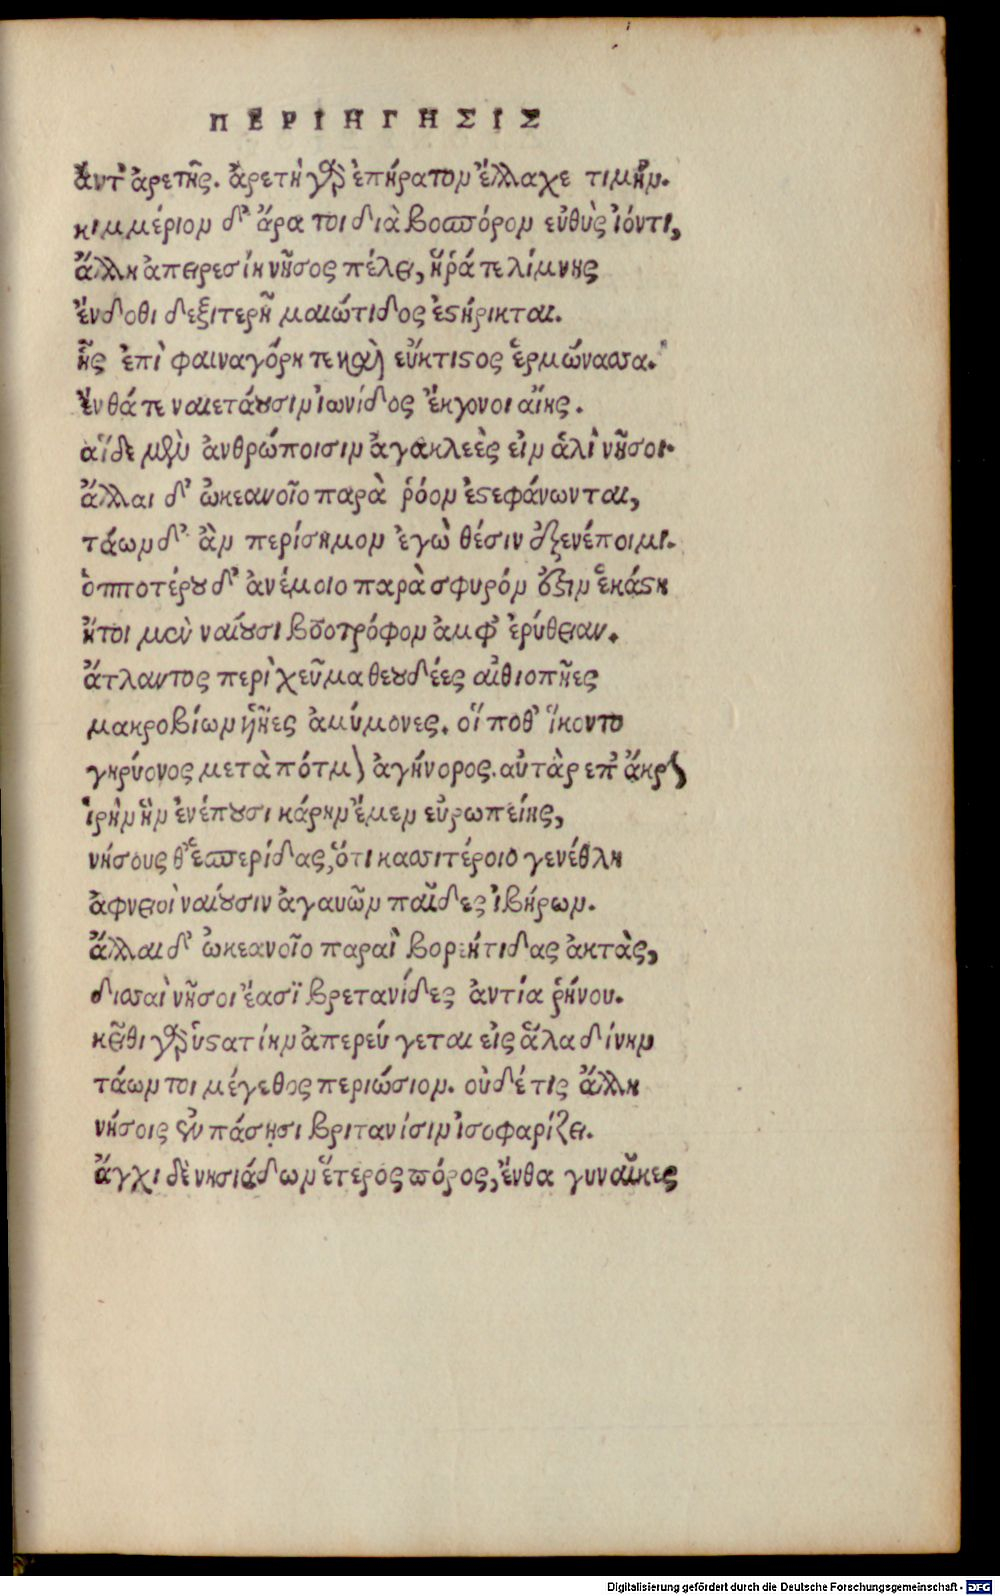 ΠΕΡΙΗΓΗΣΙΣ
ἀντ' ἀρετῆς. ἀρετὴ γὰρ ἐπήρατον ἔλλαχε τιμήν.
κιμμέριον δ' ἄρα τοι διὰ βοσπόρον εὐθὺς ἰόντι,
ἄλλη ἀπειρεσίη νῆσος πέλει, ἥῥά τε λίμνης
ἔνδοθι δεξιτερῆ μαιώτιδος ἐστήρικται.
ἧς ἐπὶ φαιναγόρη τε καὶ εὔκτιστος ἑρμώνασσα.
ἔνθά τε ναιετάουσιν ἰωνίδος ἔκγονοι αἴης.
αἵδε μὲν ἀνθρώποισιν ἀγακλεὲς εἰν ἁλὶ νῆσοι.
ἄλλαι δ' ὠκεανοῖο παρὰ ῥόον ἐστεφάνωνται,
τάων δ' ἂν περίσημον ἐγὼ θέσιν ἐξενέποιμι.
ὁπποτέρου δ' ἀνέμοιο παρὰ σφυρόν ὅξιν ἑκάστη
ἤτοι μὲν ναίουσι βοοτρόφον ἀμφ' ἐρύθειαν.
ἄτλαντος περὶ χεῦμα θεουδέες αἰθιοπῆες
μακροβίων ἡῆες ἀμύμονες. οἵ ποθ' ἵκοντο
γηρύονος μετὰ πότμον ἀγήνορος. αὐτὰρ ἐπ' ἄκρην
ἱρὴν ἣν ἐνέπουσι κάρην ἔμεν εὐρωπείης,
νήσους θ' ἑσπερίδας, ὅτι κασσιτέροιο γενέθλη
ἀφνειοὶ ναίουσιν ἀγαυῶν παῖδες ἰβήρων.
ἄλλαι δ' ὠκεανοῖο παραὶ βορεήτιδας ἀκτὰς,
δισσαὶ νῆσοι ἔασϊ βρετανίδες ἀντία ῥήνου.
κεῖθι γὰρ ὑστατίην ἀπερεύγεται εἰς ἅλα δίνην
τάων τοι μέγεθος περιώσιον. οὐδέ τις ἄλλη
νήσοις ἐν πάσῃσι βριτανίσιν ἰσοφαρίζει.
ἄγχι δὲ νησιάδων ἕτερος πόρος, ἔνθα γυναῖκες
Digitalisierung gefördert durch die Deutsche Forschungsgemeinschaft - DFG